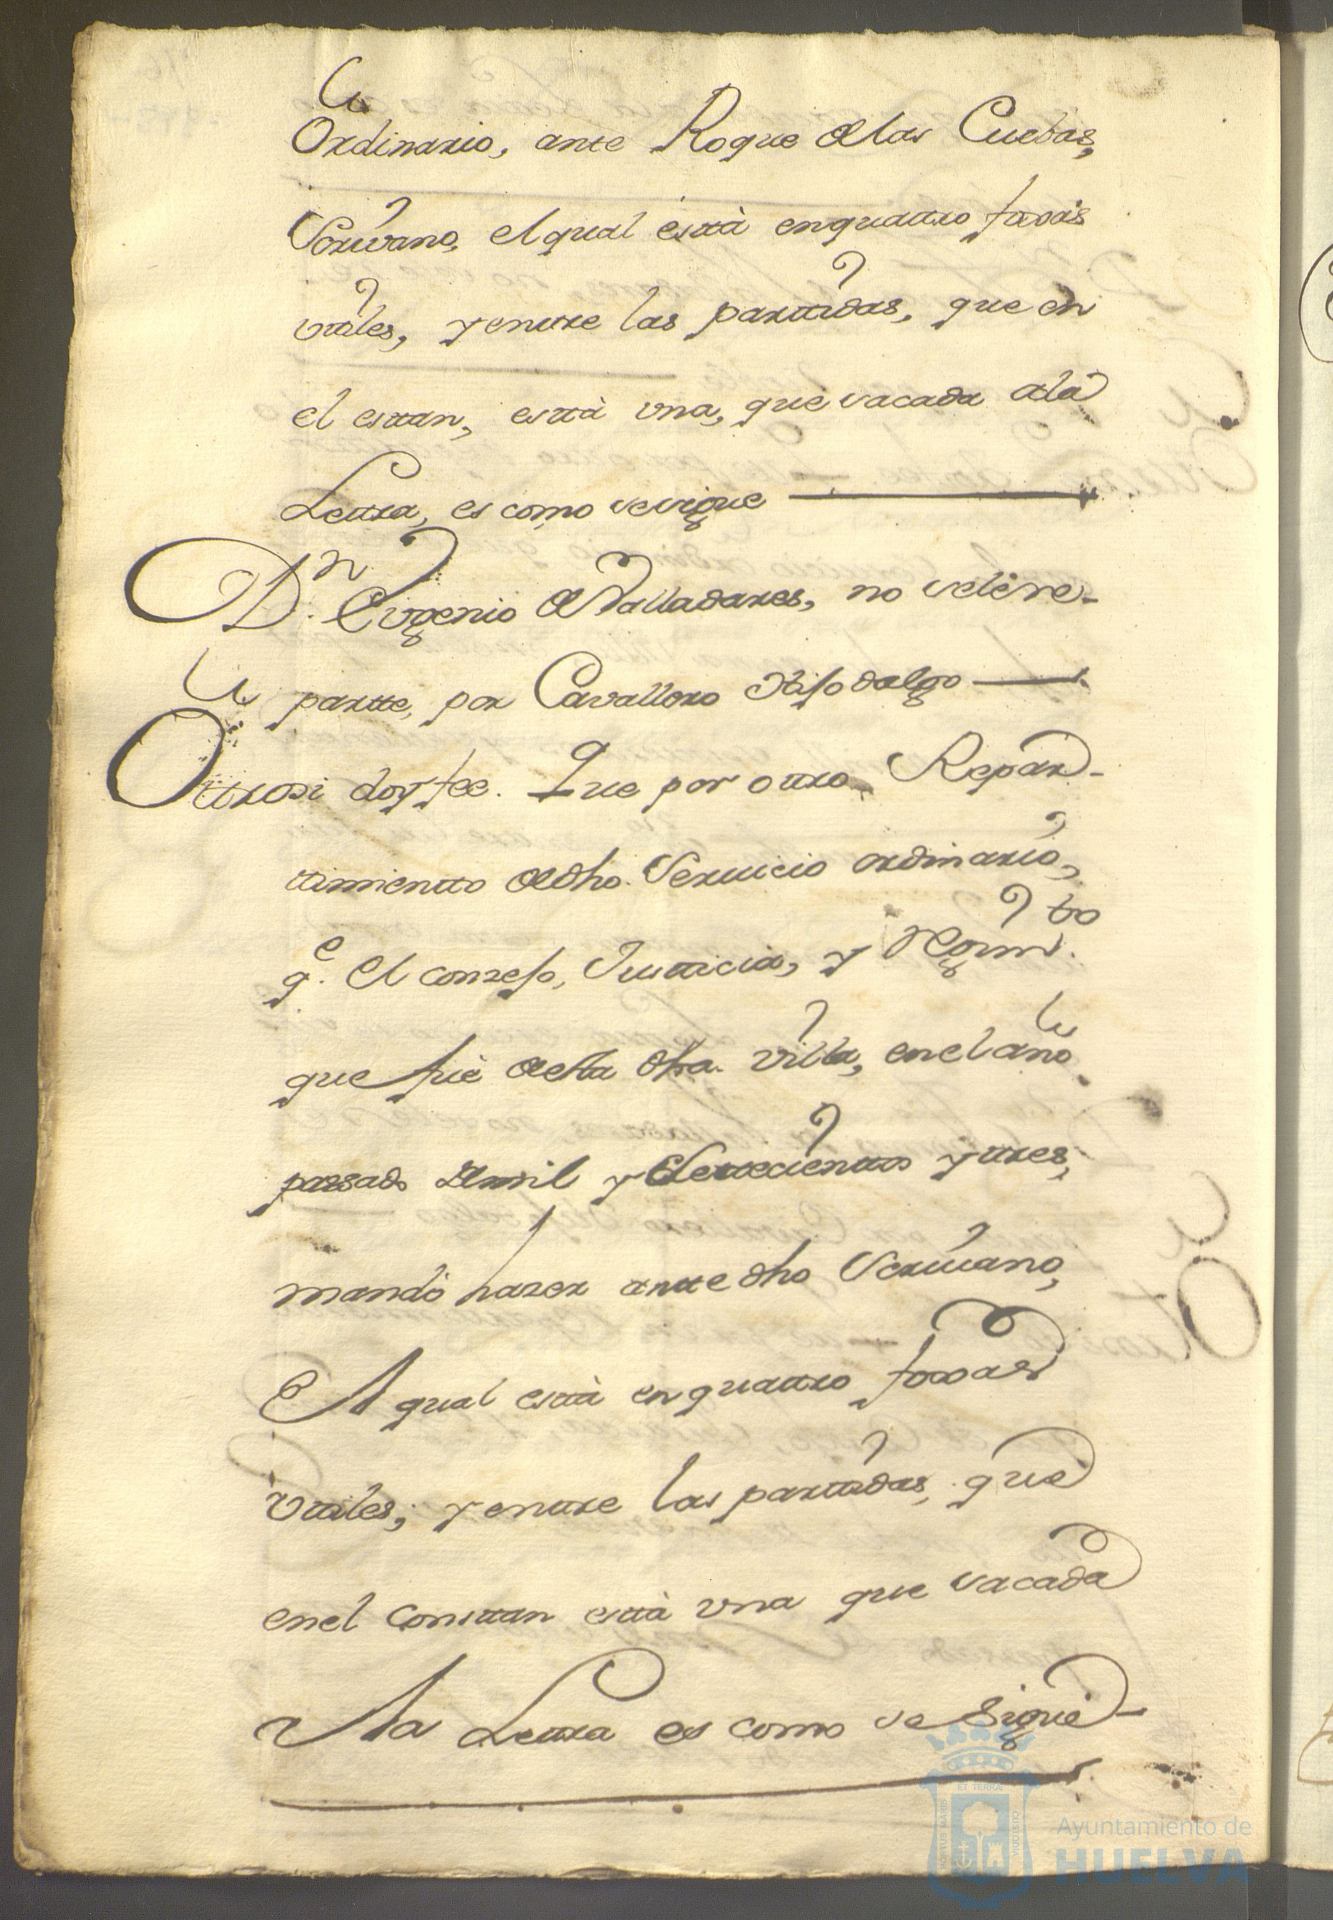 Ordinario, ante Roque de las Cuebas,
Scriuano, el qual està en quattro foxas
vtiles, y entre las parttidas, que en
el esttan, esttà vna, que sacada ala
Lettra, es como se sigue
Dn. Eugenio de Valladares, no se le re-
partte, por Cavallero Hijodalgo
Ottrosi doy fee. Que por ottro Repar-
ttimientto de dho. Seruicio ordinario,
qe. el conzejo, Justticia, y Regimto.
que fuè de esta dha. Villa, en el año
passado de mil y Settecienttos y ttres,
mandò hazer antte dho Scriuano,
El qual esttà en quattro foxas
Vttiles; y enttre las parttidas, que
en el consttan esttà vna que sacada
A la Lettra es como se sigue
Ayuntamiento de
HUELVA